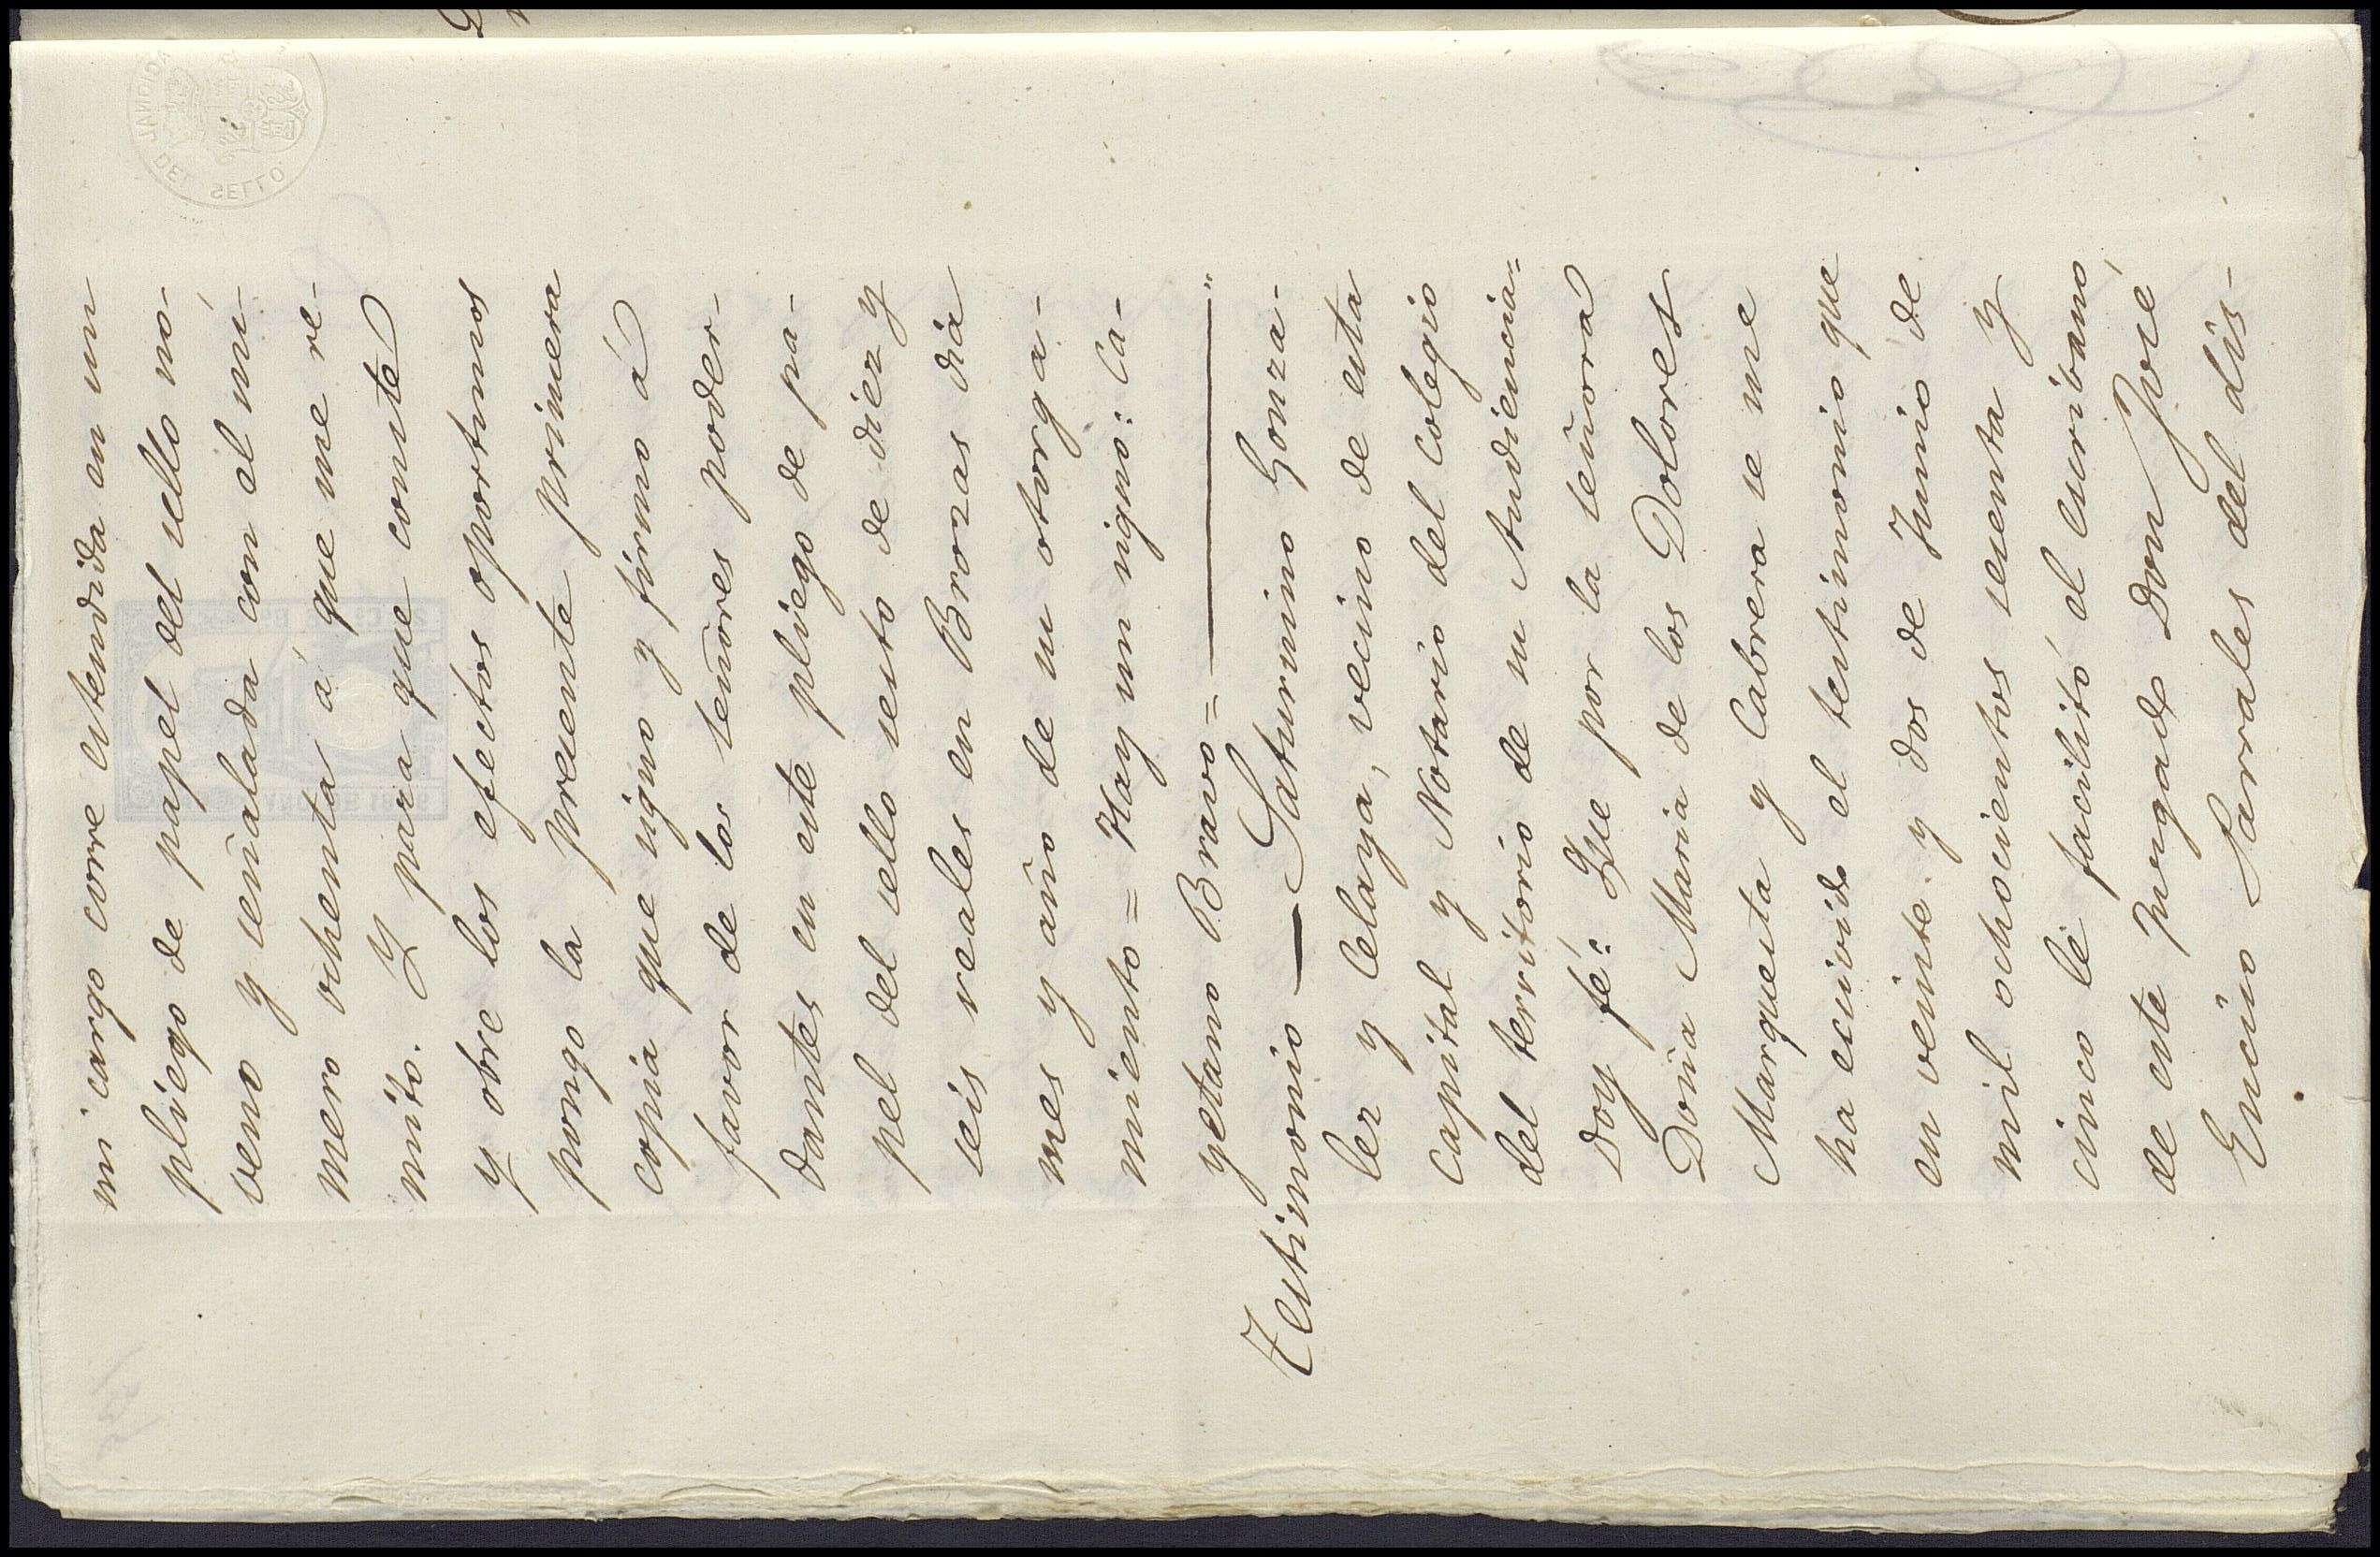 mi cargo corre estendida en un
pliego de papel del sello no-
veno y señalada con el nú-
mero ochenta á que me re-
mito. Y para que conste
y obre los efectos oportunos
pongo la presente primera
copia que signo y firmo á
favor de los señores poder-
dantes en este pliego de pa-
pel del sello sesto de diez y
seis reales en Brozas dia
mes y año de su otorga-
miento = Hay un signo: Ca-
yetano Bravo =
Testimonio — Saturnino Gonza-
lez y Celaya, vecino de esta
Capital y Notario del Colegio
del territorio de su Audiencia =
Doy fé: Que por la señora
Doña Maria de los Dolores
Marquesta y Cabrera se me
ha ecsivido el testimonio que
en veinte y dos de Junio de
mil ochocientos sesenta y
cinco le facilitó el escribano
de este Juzgado Don José
Enciso Parrales del dis-
DEL SELLO